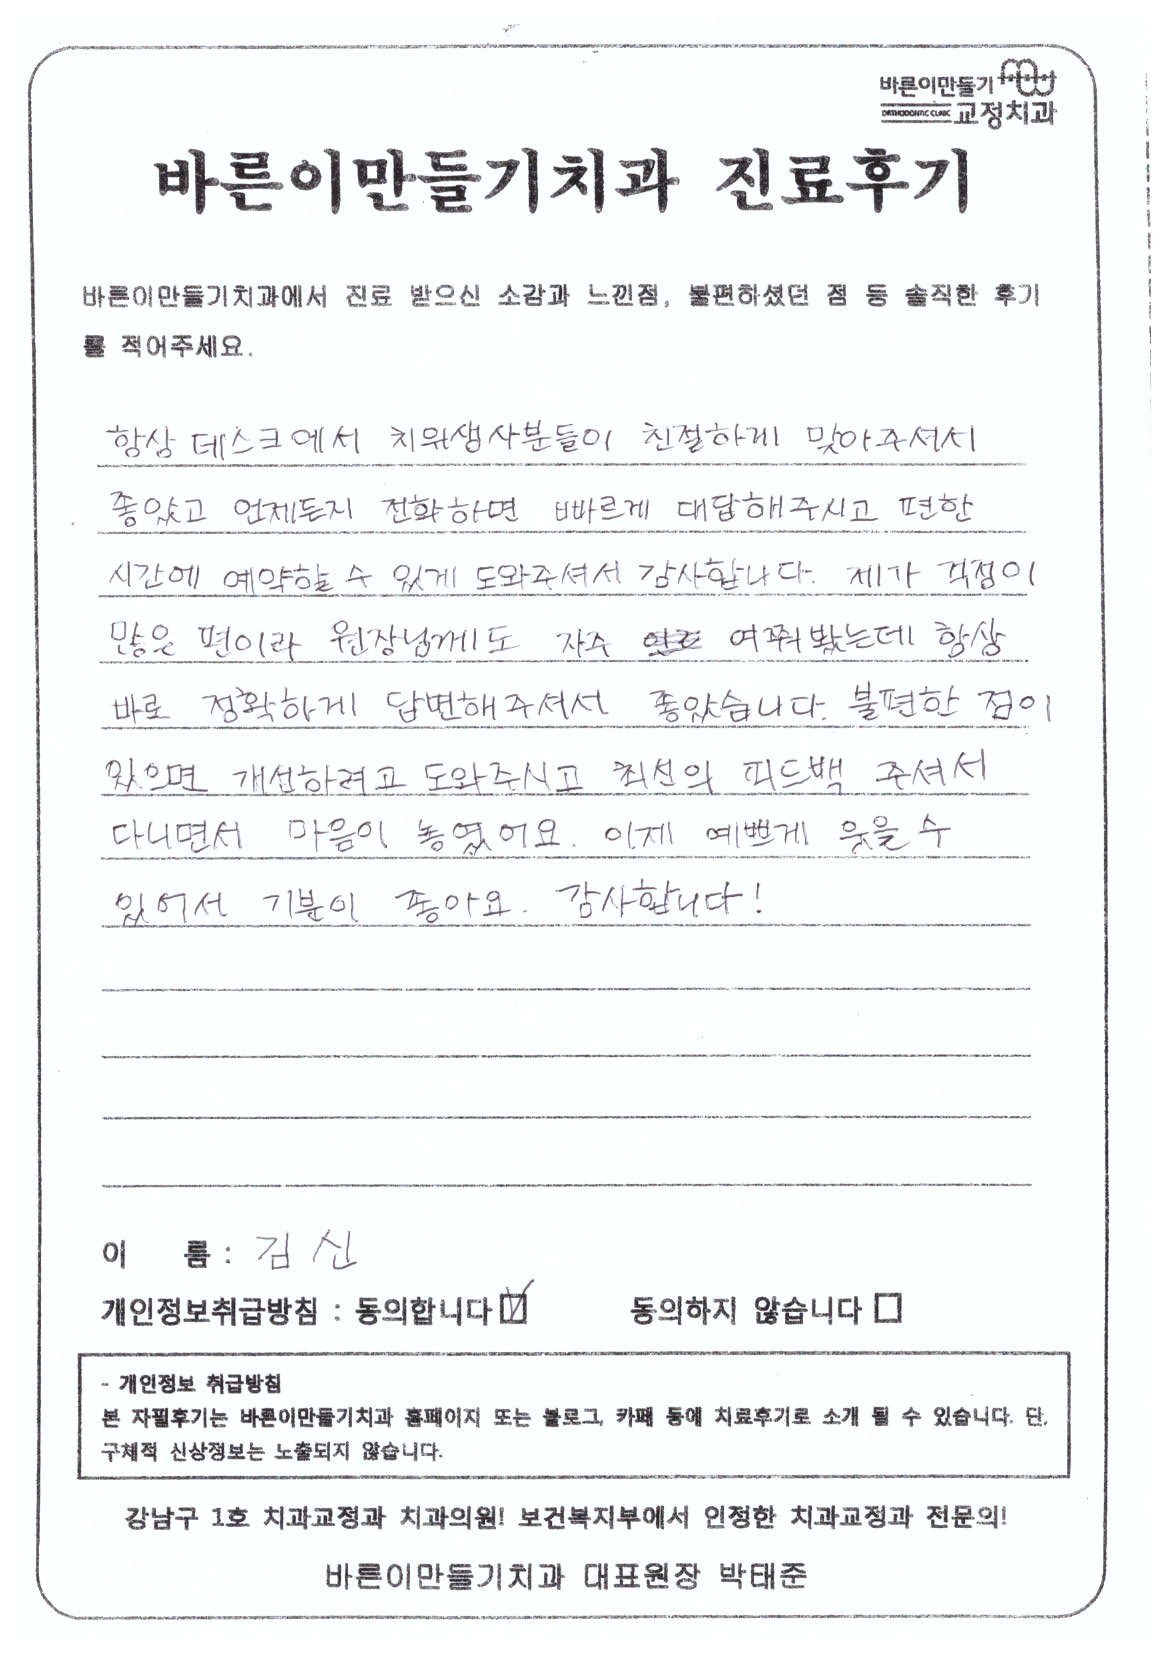 바른이만들기
ORTHODONTIC CLINIC 교정치과
바른이만들기치과 진료후기
바른이만들기치과에서 진료 받으신 소감과 느낀점, 불편하셨던 점 등 솔직한 후기
를 적어주세요.
항상 데스크에서 치위생사분들이 친절하게 맞아주셔서
좋았고 언제든지 전화하면 빠르게 대답해주시고 편한
시간에 예약할 수 있게 도와주셔서 감사합니다. 제가 걱정이
많은 편이라 원장님께도 자주 여쭤봤는데 항상
바로 정확하게 답변해주셔서 좋았습니다. 불편한 점이
있으면 개선하려고 도와주시고 최선의 피드백 주셔서
다니면서 마음이 놓였어요. 이제 예쁘게 웃을 수
있어서 기분이 좋아요. 감사합니다!
이 름 : 김신
개인정보취급방침 : 동의합니다 ☑ 동의하지 않습니다 □
- 개인정보 취급방침
본 자필후기는 바른이만들기치과 홈페이지 또는 블로그, 카페 등에 치료후기로 소개 될 수 있습니다. 단,
구체적 신상정보는 노출되지 않습니다.
강남구 1호 치과교정과 치과의원! 보건복지부에서 인정한 치과교정과 전문의!
바른이만들기치과 대표원장 박태준